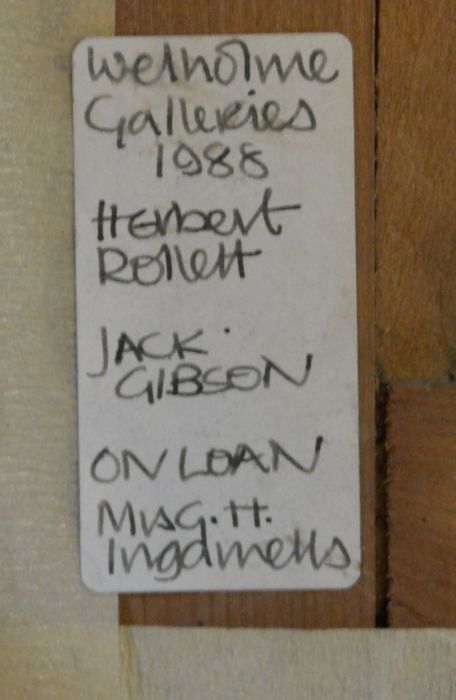 Welholme
Galleries
1988
Herbert
Rollett
JACK
GIBSON
ON LOAN
Mrs G. H.
Ingamells